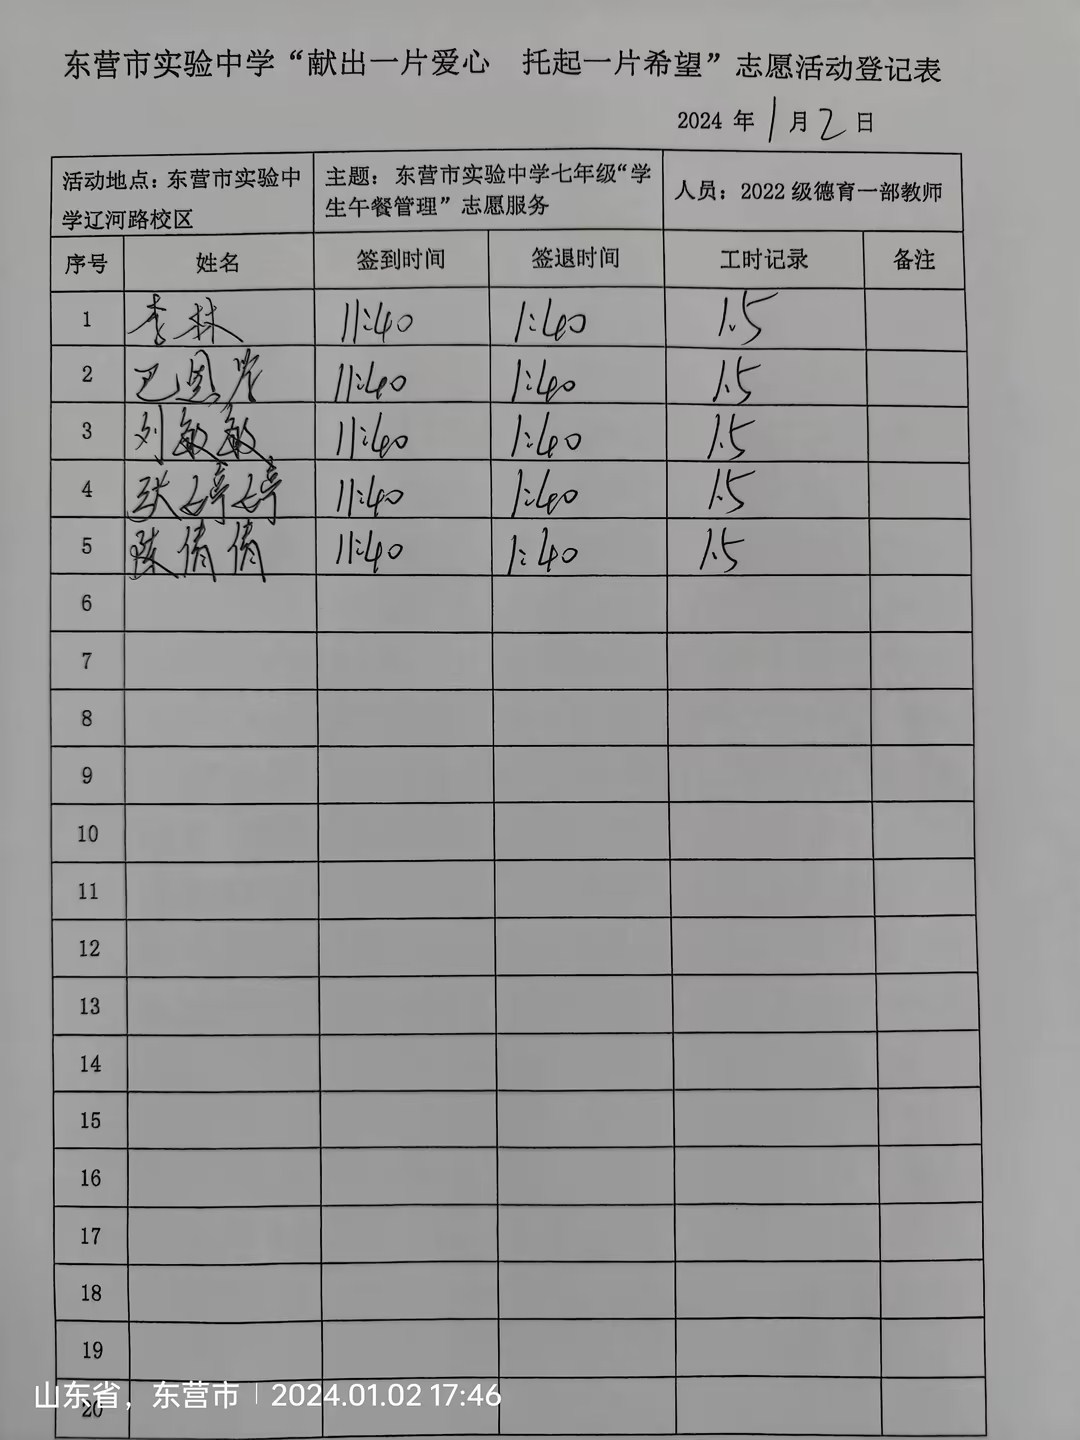 东营市实验中学“献出一片爱心 托起一片希望”志愿活动登记表
2024 年 1 月 2 日
活动地点：东营市实验中学辽河路校区 主题：东营市实验中学七年级“学生午餐管理”志愿服务 人员：2022 级德育一部教师
序号 姓名 签到时间 签退时间 工时记录 备注
1 李林 11:40 1:40 1.5
2 巴恩 11:40 1:40 1.5
3 刘敏敏 11:40 1:40 1.5
4 张婷婷 11:40 1:40 1.5
5 陈倩倩 11:40 1:40 1.5
6
7
8
9
10
11
12
13
14
15
16
17
18
19
20
山东省，东营市 | 2024.01.02 17:46